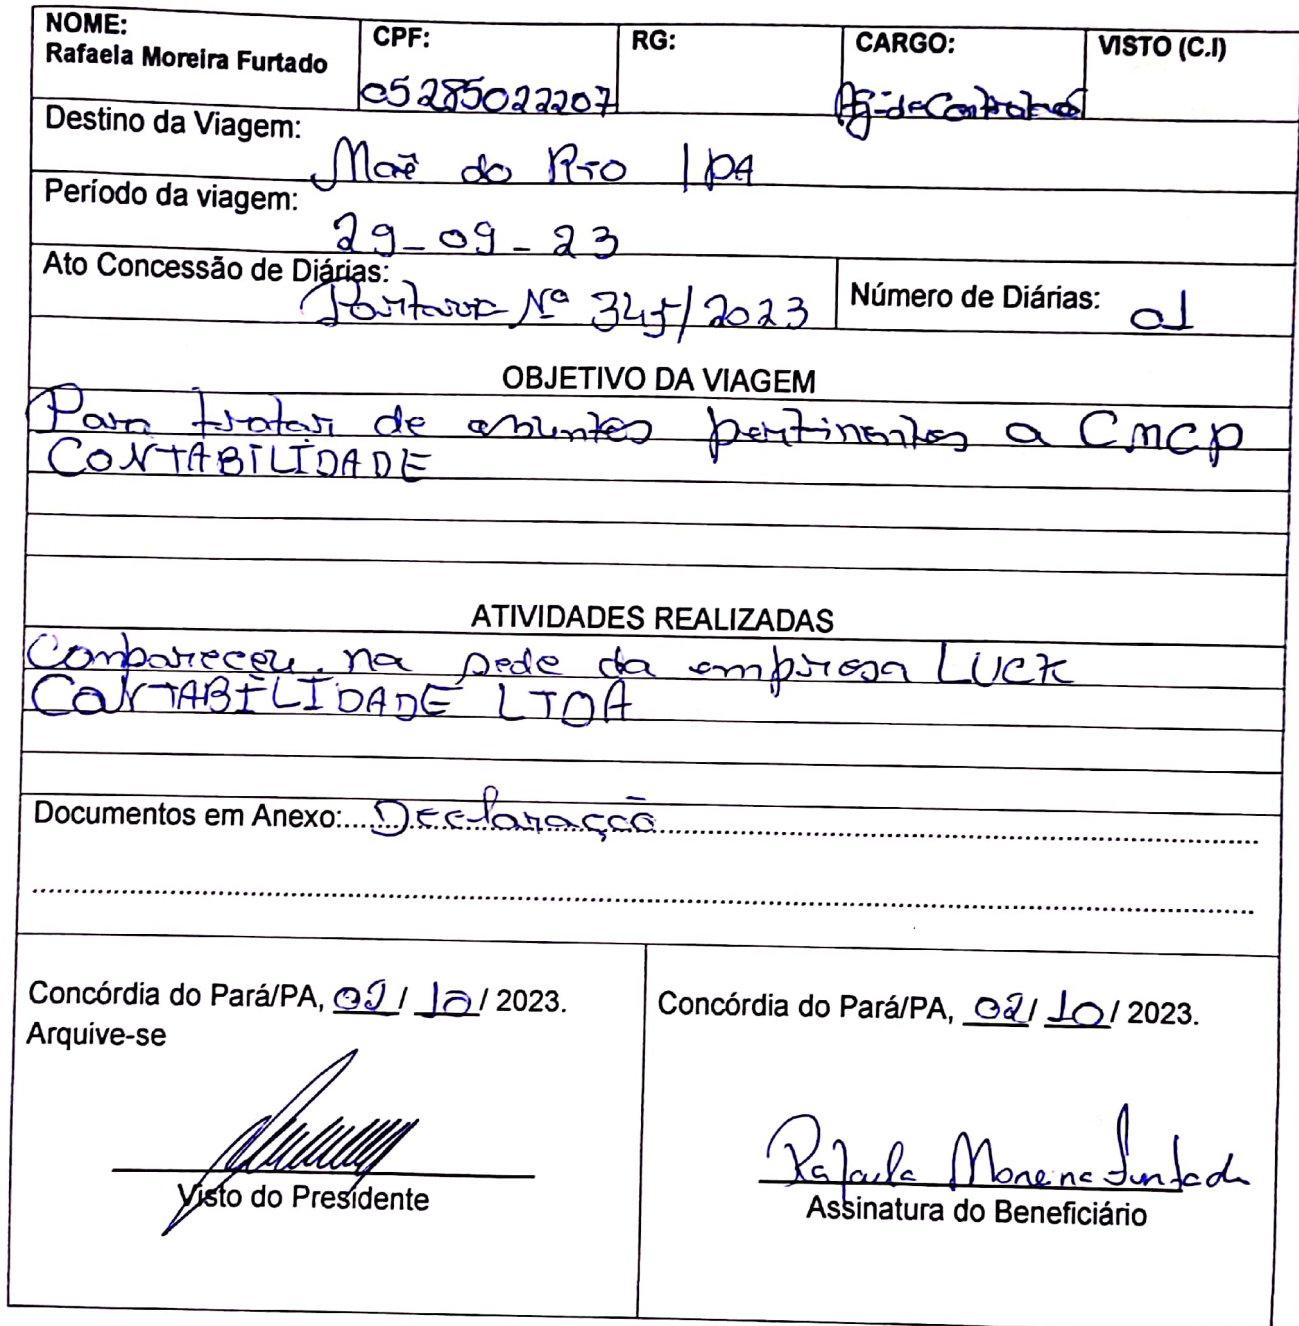 NOME: CPF: RG: CARGO: VISTO (C.I)
Rafaela Moreira Furtado
05285022207 Ag-de Contratos
Destino da Viagem:
Maē do Rio / PA
Período da viagem:
29-09-23
Ato Concessão de Diárias:
Portaria Nº 345/2023 Número de Diárias: 01
OBJETIVO DA VIAGEM
Para tratar de assuntos pertinentes a CMCP
CONTABILIDADE
ATIVIDADES REALIZADAS
Compareceu na sede da empresa LUCK
CONTABILIDADE LTDA
Documentos em Anexo: Declaração
Concórdia do Pará/PA, 02 / 10 / 2023.
Arquive-se
Visto do Presidente
Concórdia do Pará/PA, 02 / 10 / 2023.
Rafaela Moreira Furtado
Assinatura do Beneficiário